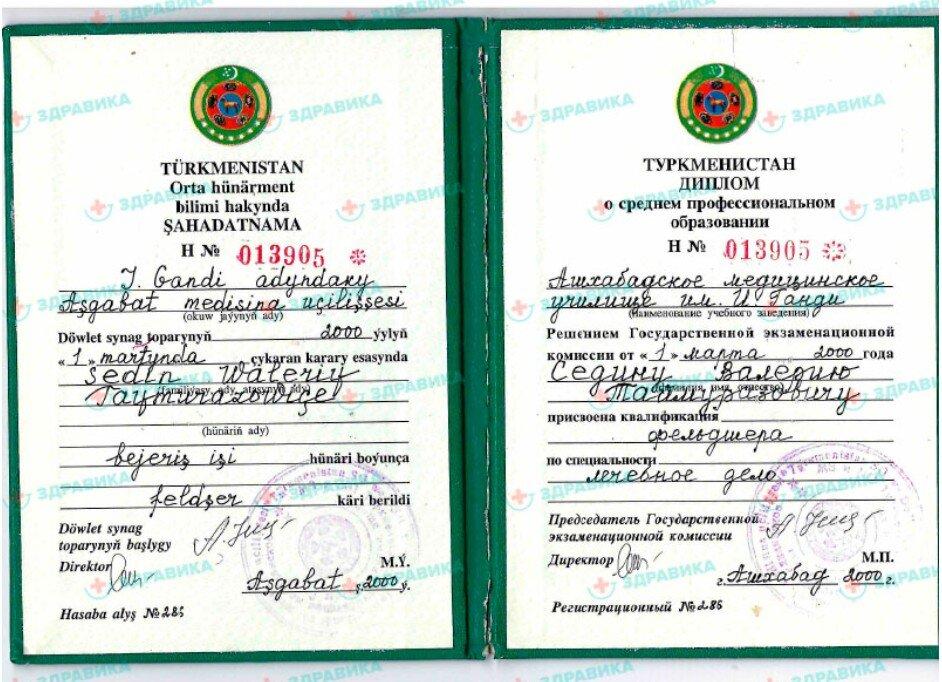 TÜRKMENISTAN
Orta hünärment
bilimi hakynda
ŞAHADATNAMA
Н № 013905
I. Gandi adyndaky
Aşgabat medisina uçilişşesi
(okuw jaýynyň ady)
Döwlet synag toparynyň 2000 ýylyň
« 1 » martynda çykaran karary esasynda
Sedin Waleriý
(familiýasy, ady, atasynyň ady)
Taýmurazowiçe
(hünäriň ady)
bejeriş işi hünäri boýunça
feldşer käri berildi
Döwlet synag
toparynyň başlygy
Direktor M.Ý.
Aşgabat ş. 2000 ý.
Hasaba alyş № 286
ТУРКМЕНИСТАН
ДИПЛОМ
о среднем профессиональном
образовании
Н № 013905
Ашхабадское медицинское
училище им. И. Ганди
(наименование учебного заведения)
Решением Государственной экзаменационной
комиссии от « 1 » марта 2000 года
Седину Валерию
(фамилия, имя, отчество)
Таймуразовичу
присвоена квалификация
фельдшера
по специальности
лечебное дело
Председатель Государственной
экзаменационной комиссии
Директор М.П.
г. Ашхабад 2000 г.
Регистрационный № 286
ЗДРАВИКА